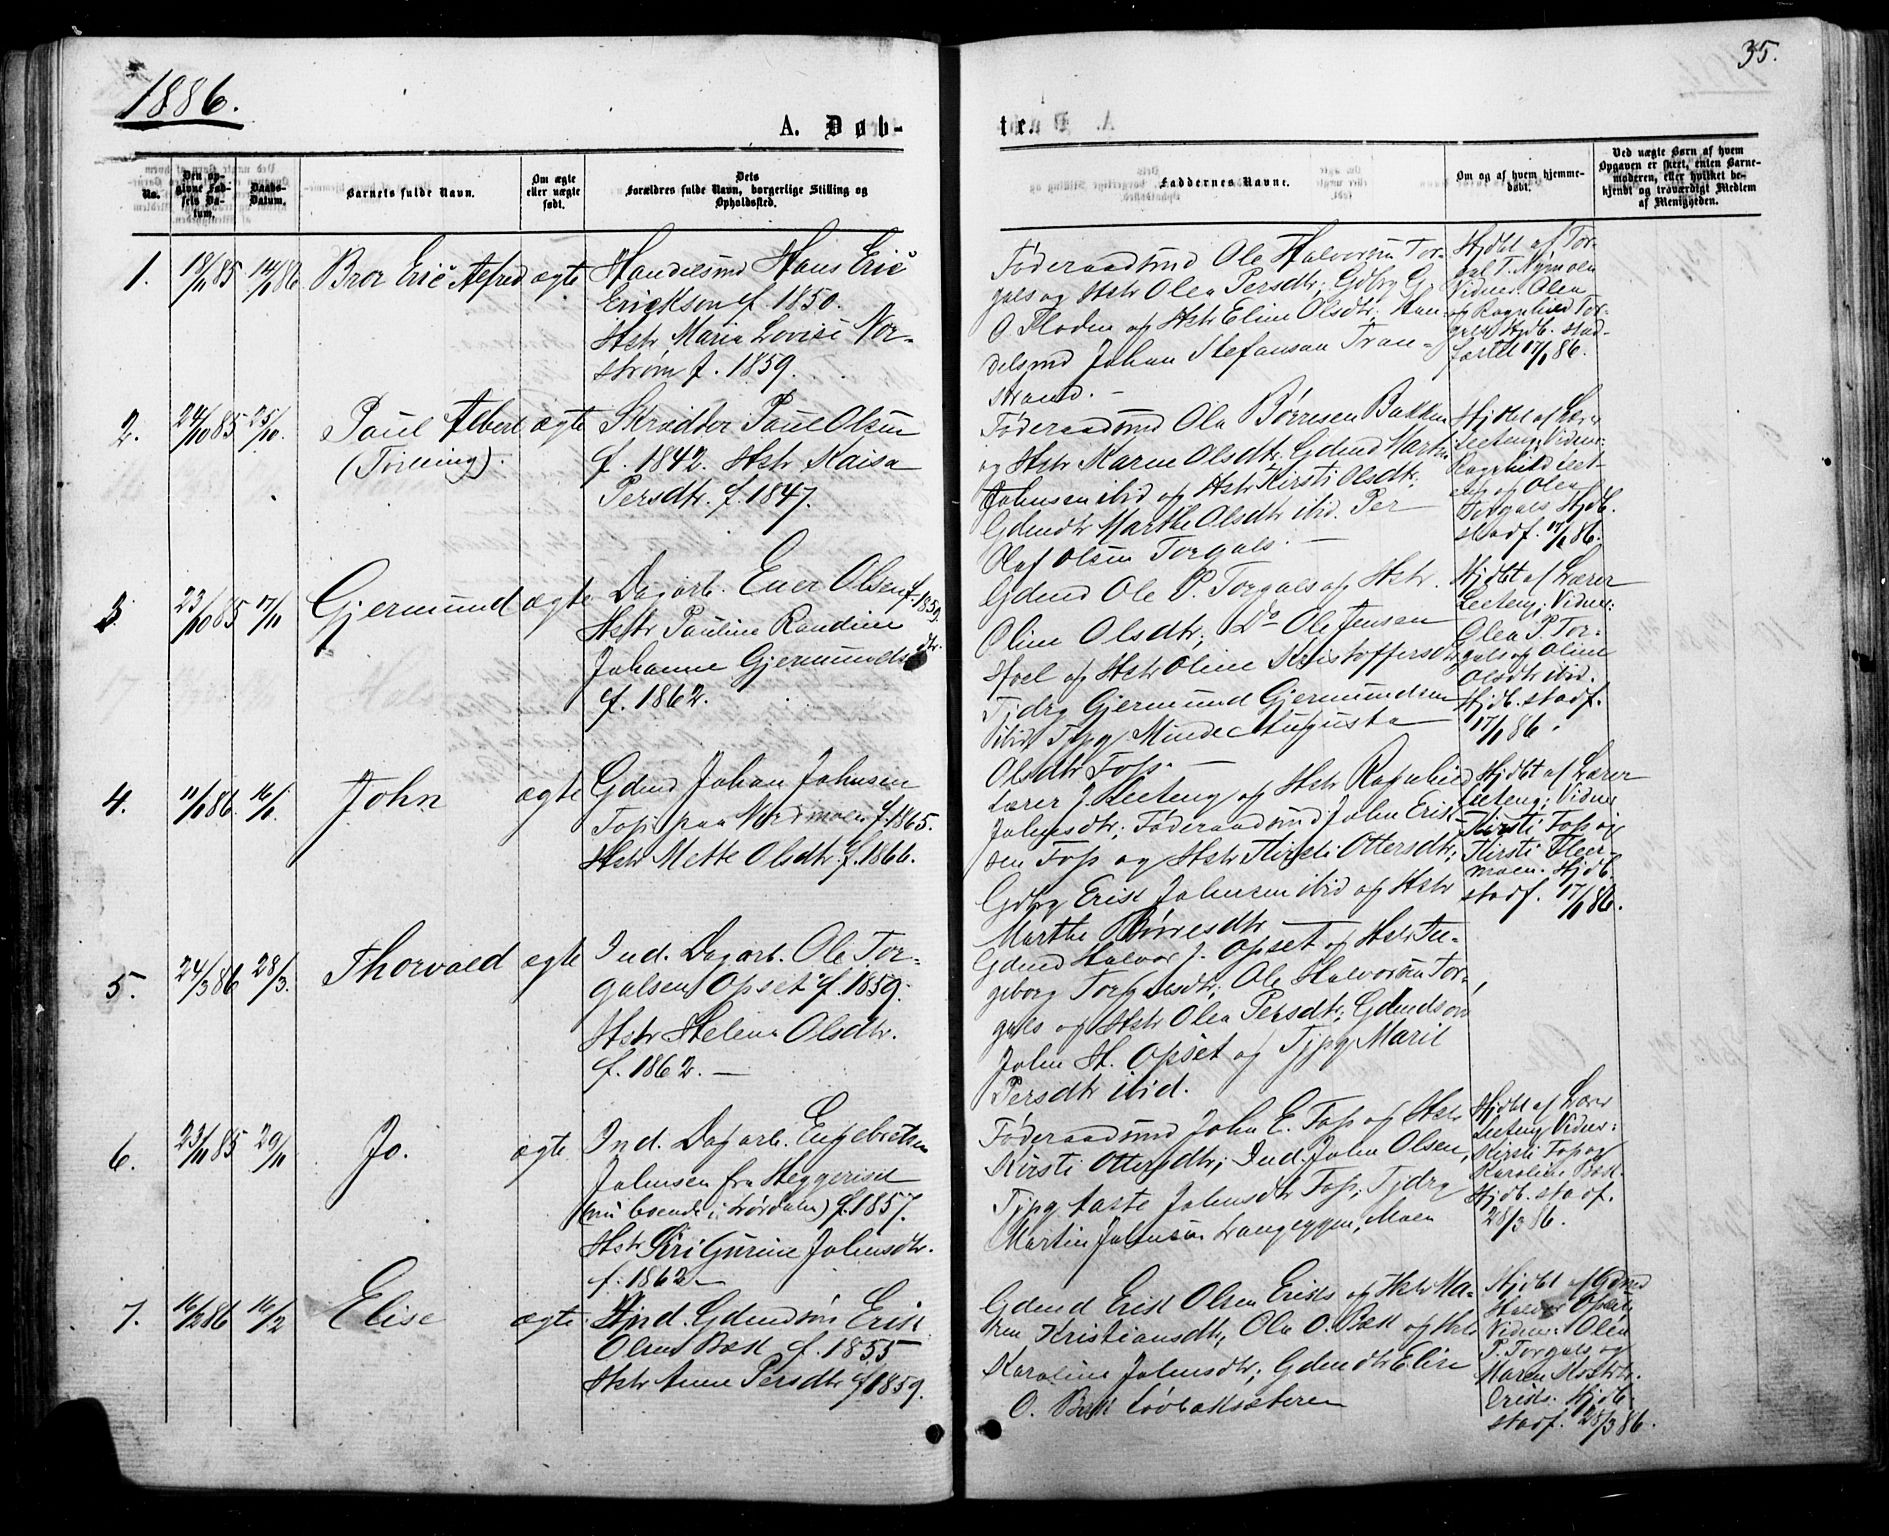 1886.
35.
A. Døb-
te.
No.
Den op-
givne Fød-
sels Da-
tum.
Daabs-
Datum.
Barnets fulde Navn.
Om ægte
eller uægte
født.
Dets
Forældres fulde Navn, borgerlige Stilling og
Opholdssted.
Faddernes Navne.
Om og af hvem hjemme-
døbt.
Ved uægte Børn af hvem
Opgaven er skeet, enten Barne-
moderen, eller hvilket be-
kjendt og troværdigt Medlem
af Menigheden.
1.
85
14/1 86
Bror Eric Alfred
ægte
Handelsmd Hans Eric
Erickson f. 1850.
Hstr Maria Lovise Nor-
strøm f. 1859.
Føderaadsmd Ole Halvorsen Tor-
gals og Hstr Olea Persdtr; Gdbrg G.
O. Floden og Hstr Eline Olsdtr. Han-
delsmd Johan Stefansson Tran-
strand. -
Hjdbt af Tor-
gal T. Nymoen
Vidner Olea
og Ragnhild Tor-
gals, Hjdb. stad-
fæstet 17/1 86.
2.
24/10 85
25/10.
Paul Albert
(Tvilling).
ægte
Skrædder Paul Olsen
f. 1842. Hstr Kaisa
Persdtr. f. 1847.
Føderaadsmd Ola Børresen Bakken
og Hstr Karen Olsdtr. Gdmd Martin
Johnsen ibid og Hstr Kirsti Olsdtr;
Gdmdtr Marthe Olsdtr ibid. Per
Olaf Olsen Torgals. -
Hjdbt af Lærer
Leeteng; Vidner:
Ragnhild Leet-
eng og Olea
Torgals. Hjdb.
stadf. 17/1 86.
3
23/10 85
17/11
Gjermund
ægte
Dagarb. Ener Olsen f. 1859.
Hstr Pauline Randine
Johanne Gjermunds
dtr.
f. 1862.
Gdmd Ole P. Torgals og Hstr.
Oline Olsdtr; Do Ole Jensen
Hoel og Hstr Oline Kristoffersdtr
Tjdrg Gjermund Gjermundsen
ibid, Tjpg Minde Augusta
Olsdtr Fos. -
Hjdbt af Lærer
Leeteng; Vidner:
Olea P. Tor-
gals og Oline
Olsdtr ibid.
Hjdb. stadf.
17/1 86.
4.
11/1 86
16/1
John
ægte
Gdmd Johan Johnsen
Fos paa Nordmoen f. 1865.
Hstr Mette Olsdtr. f. 1866.
Lærer J. Leeteng og Hstr Ragnhild
Johnsdtr; Føderaadsmd John Erik-
sen Fos og Hstr Kirsti Ottersdtr;
Gdbrg Erik Johnsen ibid og Hstr
Marthe Børresdtr
Hjdbt af Lærer
Leeteng; Vidner
Kirsti Fos og
Kirsti
moen. Hjdb.
stadf. 17/1 86.
5.
24/3 86
28/3.
Thorvald
ægte
Ind. Dagarb. Ole Tor-
galsen Opset f. 1859.
Hstr Helene Olsdtr.
f. 1862. -
Gdmd Halvor J. Opset og Hstr In-
geborg Torgalsdtr; Ole Halvorsen Tor-
gals og Hstr Olea Persdtr; Gdmdsøn
John H. Opset og Tjpg Marit
Persdtr ibid.
6.
23/11 85
29/11
Jo.
ægte
Ind. Dagarb. Engebret
Johnsen fra Heggeriset
(nu boende i Lørdalen) f. 1857.
Hstr Siri Gurine Johnsdtr.
f. 1862 -
Føderaadsmd John E. Fos og Hstr
Kirsti Ottersdtr; Ind. John Olsen,
Tjpg Aaste Johnsdtr Fos; Tjdrg
Martin Johnsen Langeggen, Moen
Hjdbt af Lærer
Leeteng Vidner:
Kirsti Fos og
Karoline Bæk.
Hjdb. stadf.
28/3 86.
7.
16/2 86
16/2
Elise
ægte
Ind. Gdmdsøn Erik
Olsen Bæk f. 1855
Hstr Anne Persdtr f. 1859.
Gdmd Erik Olsen Eriks og Hstr Ma-
ren Kristiansdtr; Ole O. Bæk og Hstr
Karoline Johnsdtr; Gdmdtr Elise
O. Bæk Løvbaksæteren
Hjdbt af Gdmd
Halvor Opset;
Vidner: Olea
P. Torgals og
Maren
Eriks. Hjdb.
stadf. 28/3 86.